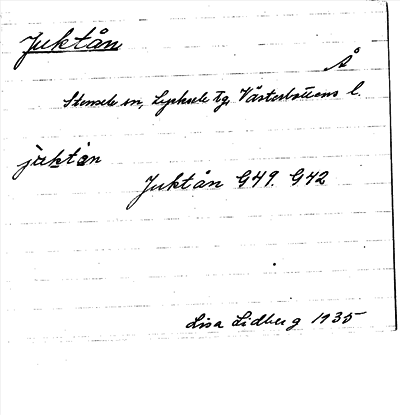 Juktån
Å
Stensele sn, Lycksele tg, Västerbottens l.
juktån
Juktån G49. G42
Lisa Lidberg 1935